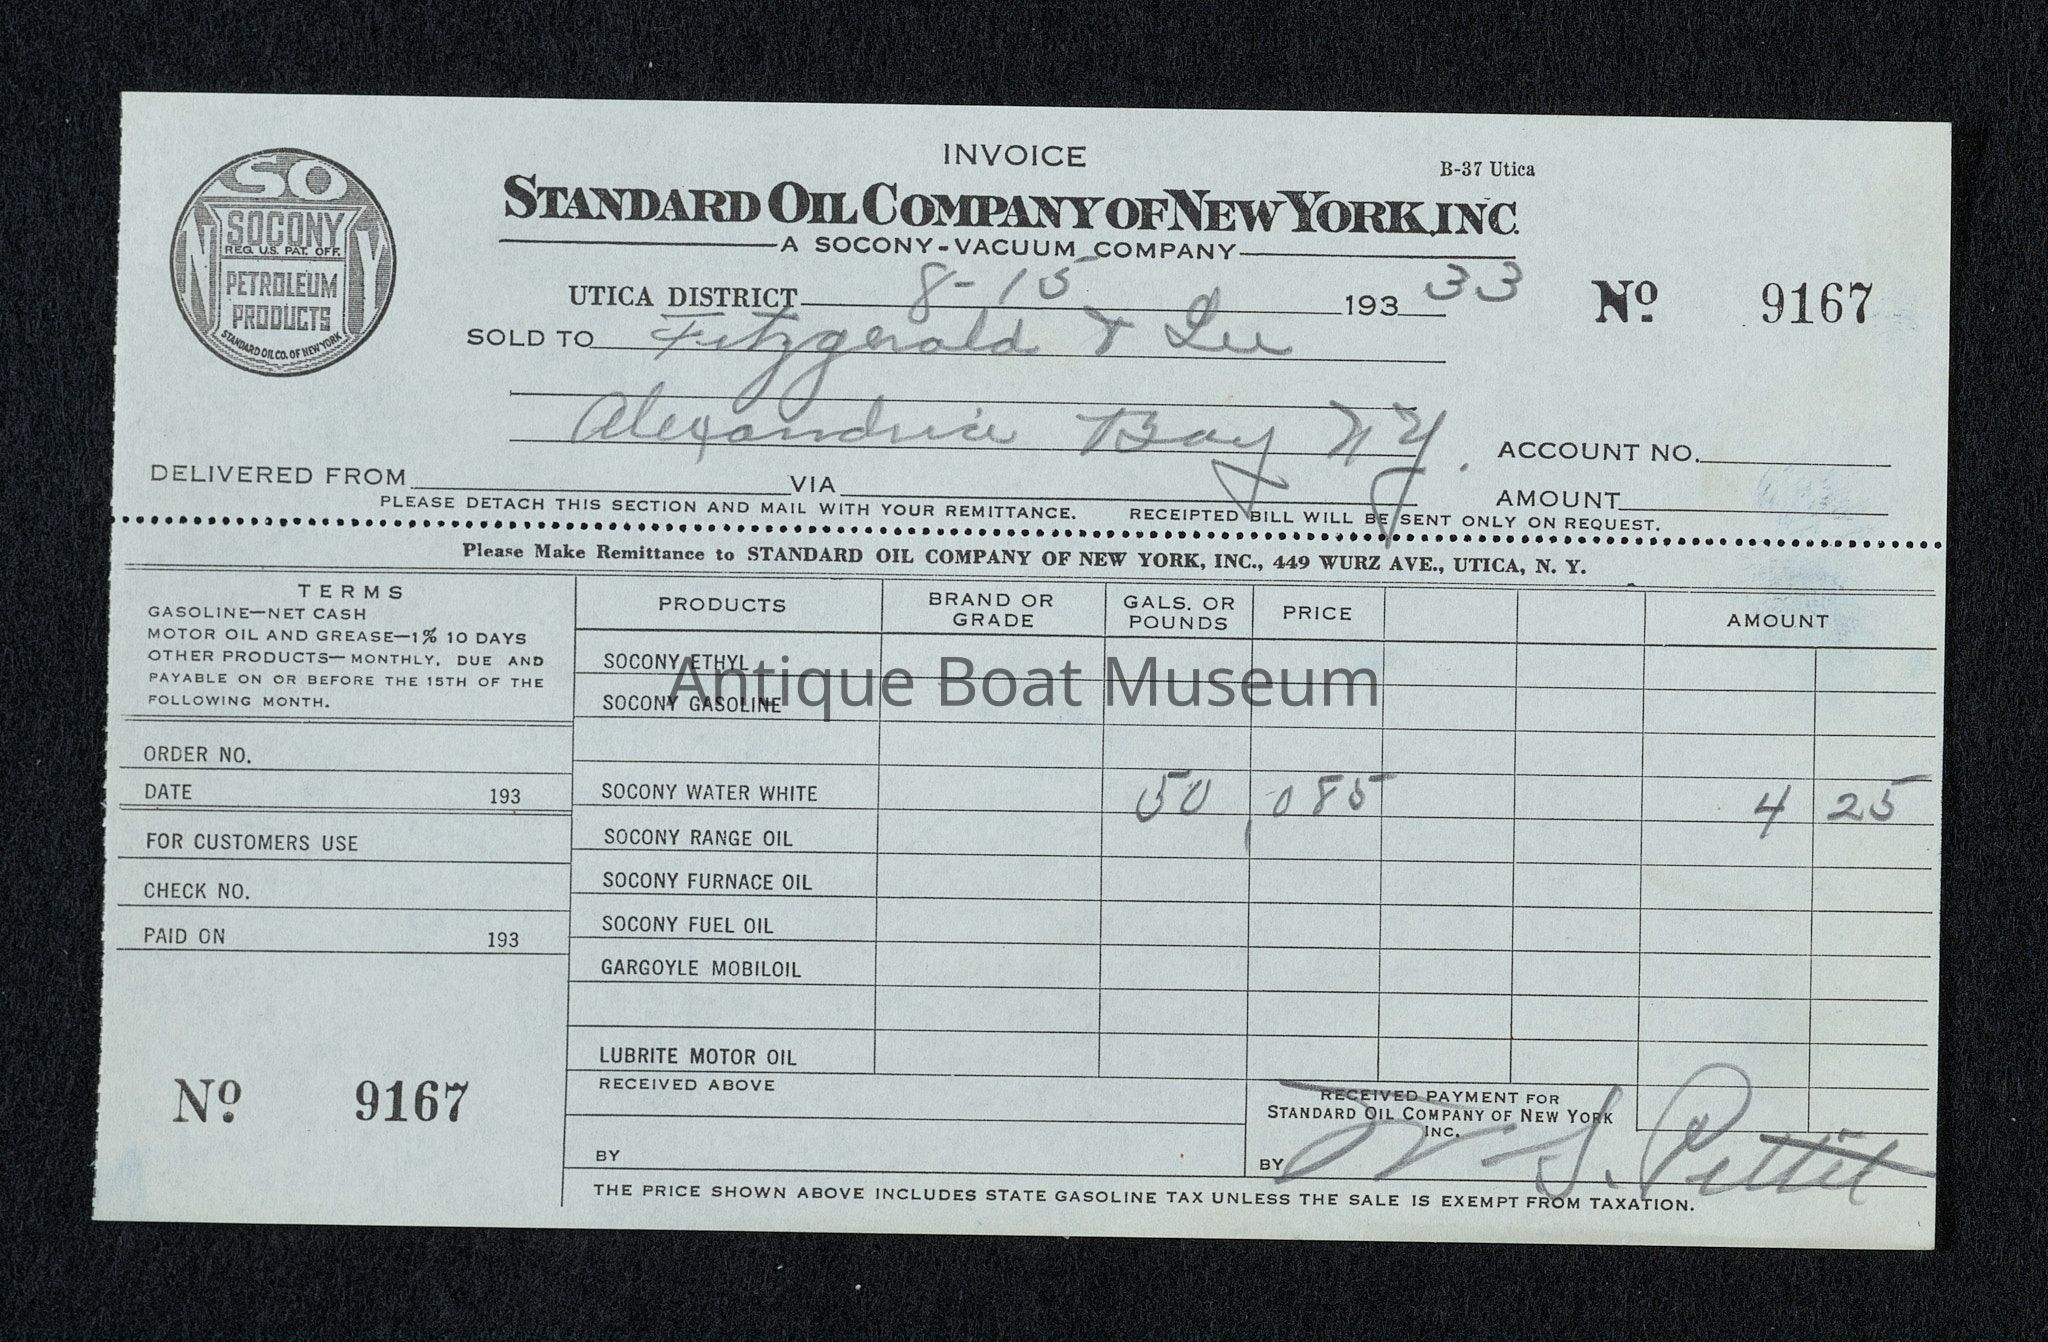 INVOICE
B-37 Utica
STANDARD OIL COMPANY OF NEW YORK, INC.
A SOCONY-VACUUM COMPANY
SO
NY
SOCONY
REG. U.S. PAT. OFF.
PETROLEUM
PRODUCTS
STANDARD OIL CO. OF NEW YORK
UTICA DISTRICT 8-15 193 33
No. 9167
SOLD TO Fitzgerald & Lee
Alexandria Bay N.Y.
ACCOUNT NO.
DELIVERED FROM VIA AMOUNT
PLEASE DETACH THIS SECTION AND MAIL WITH YOUR REMITTANCE. RECEIPTED BILL WILL BE SENT ONLY ON REQUEST.
Please Make Remittance to STANDARD OIL COMPANY OF NEW YORK, INC., 449 WURZ AVE., UTICA, N. Y.
TERMS
GASOLINE—NET CASH
MOTOR OIL AND GREASE—1% 10 DAYS
OTHER PRODUCTS—MONTHLY, DUE AND
PAYABLE ON OR BEFORE THE 15TH OF THE
FOLLOWING MONTH.
ORDER NO.
DATE 193
FOR CUSTOMERS USE
CHECK NO.
PAID ON 193
No. 9167
PRODUCTS BRAND OR GRADE GALS. OR POUNDS PRICE AMOUNT
SOCONY ETHYL
Antique Boat Museum
SOCONY GASOLINE
SOCONY WATER WHITE 50 085 4 25
SOCONY RANGE OIL
SOCONY FURNACE OIL
SOCONY FUEL OIL
GARGOYLE MOBILOIL
LUBRITE MOTOR OIL
RECEIVED ABOVE
BY
RECEIVED PAYMENT FOR
STANDARD OIL COMPANY OF NEW YORK
INC.
BY S. Pettit
THE PRICE SHOWN ABOVE INCLUDES STATE GASOLINE TAX UNLESS THE SALE IS EXEMPT FROM TAXATION.